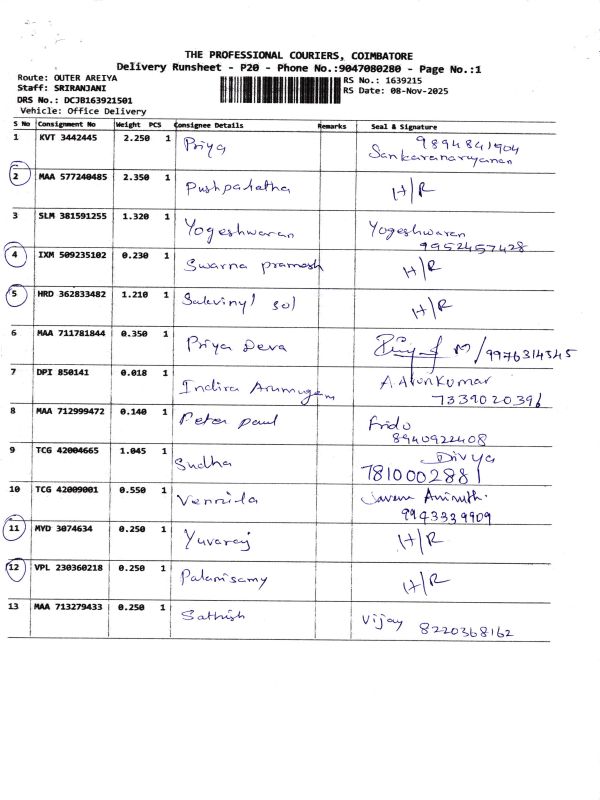 THE PROFESSIONAL COURIERS, COIMBATORE
Delivery Runsheet - P20 - Phone No.:9047080280 - Page No.:1
Route: OUTER AREIYA RS No.: 1639215
Staff: SRIRANJANI RS Date: 08-Nov-2025
DRS No.: DCJB163921501
Vehicle: Office Delivery
S No Consignment No Weight PCS Consignee Details Remarks Seal & Signature
1 KVT 3442445 2.250 1 Priya 9894841904
Sankaranarayanan
2 MAA 577240485 2.350 1 Pushpalatha H/R
3 SLM 381591255 1.320 1 Yogeshwaran Yogeshwaran
9952457428
4 IXM 509235102 0.230 1 Swarna pramosh H/R
5 HRD 362833482 1.210 1 Sakvinyl sol H/R
6 MAA 711781844 0.350 1 Priya Deva M/9976314545
7 DPI 850141 0.018 1 Indira Arumugam A.Arunkumar
7339020396
8 MAA 712999472 0.140 1 Peter paul Frido
8940922408
9 TCG 42004665 1.045 1 Sudha Divya
7810002881
10 TCG 42009001 0.550 1 Vennila
9943339909
11 MYD 3074634 0.250 1 Yuvaraj H/R
12 VPL 230360218 0.250 1 Palanisamy H/R
13 MAA 713279433 0.250 1 Sathish Vijay 8220368162